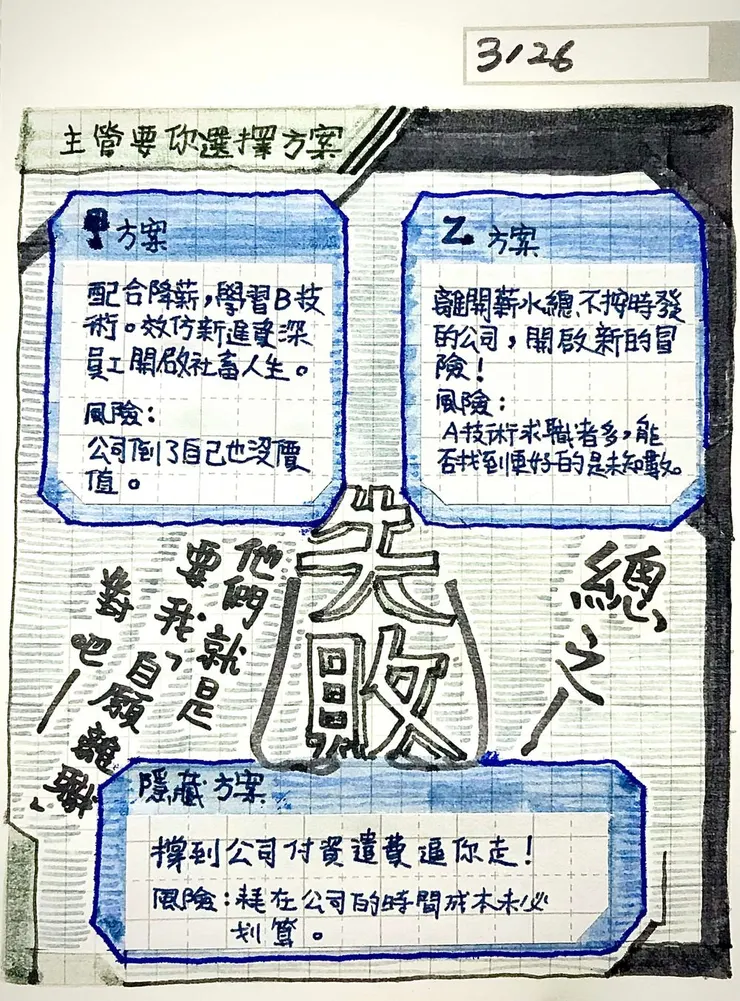 3/26
主管要你選擇方案
方案
配合降薪，學習B技
術。效仿新進資深
員工開啟社畜人生。
風險：
公司倒了自己也沒價
值。
Z 方案
離開薪水總不按時發
的公司，開啟新的冒
險！
風險：
A技術求職者多，能
否找到更好的是未知數。
失敗
總
之
他們就是
要我「自願離職」
對吧
隱藏方案
撐到公司付資遣費逼你走！
風險：耗在公司的時間成本未必
划算。